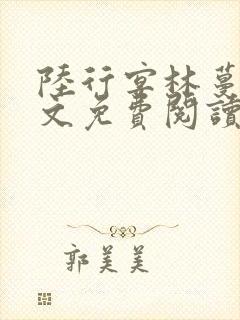 陸行宴林蔓
文免費閱讀
郭美美